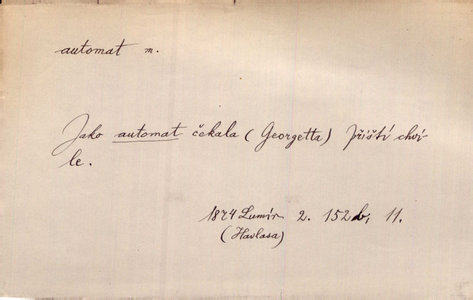 automat m.
Jako automat čekala (Georgetta) příští chví-
le.
1874 Lumír 2. 152b, 11.
(Havlasa)